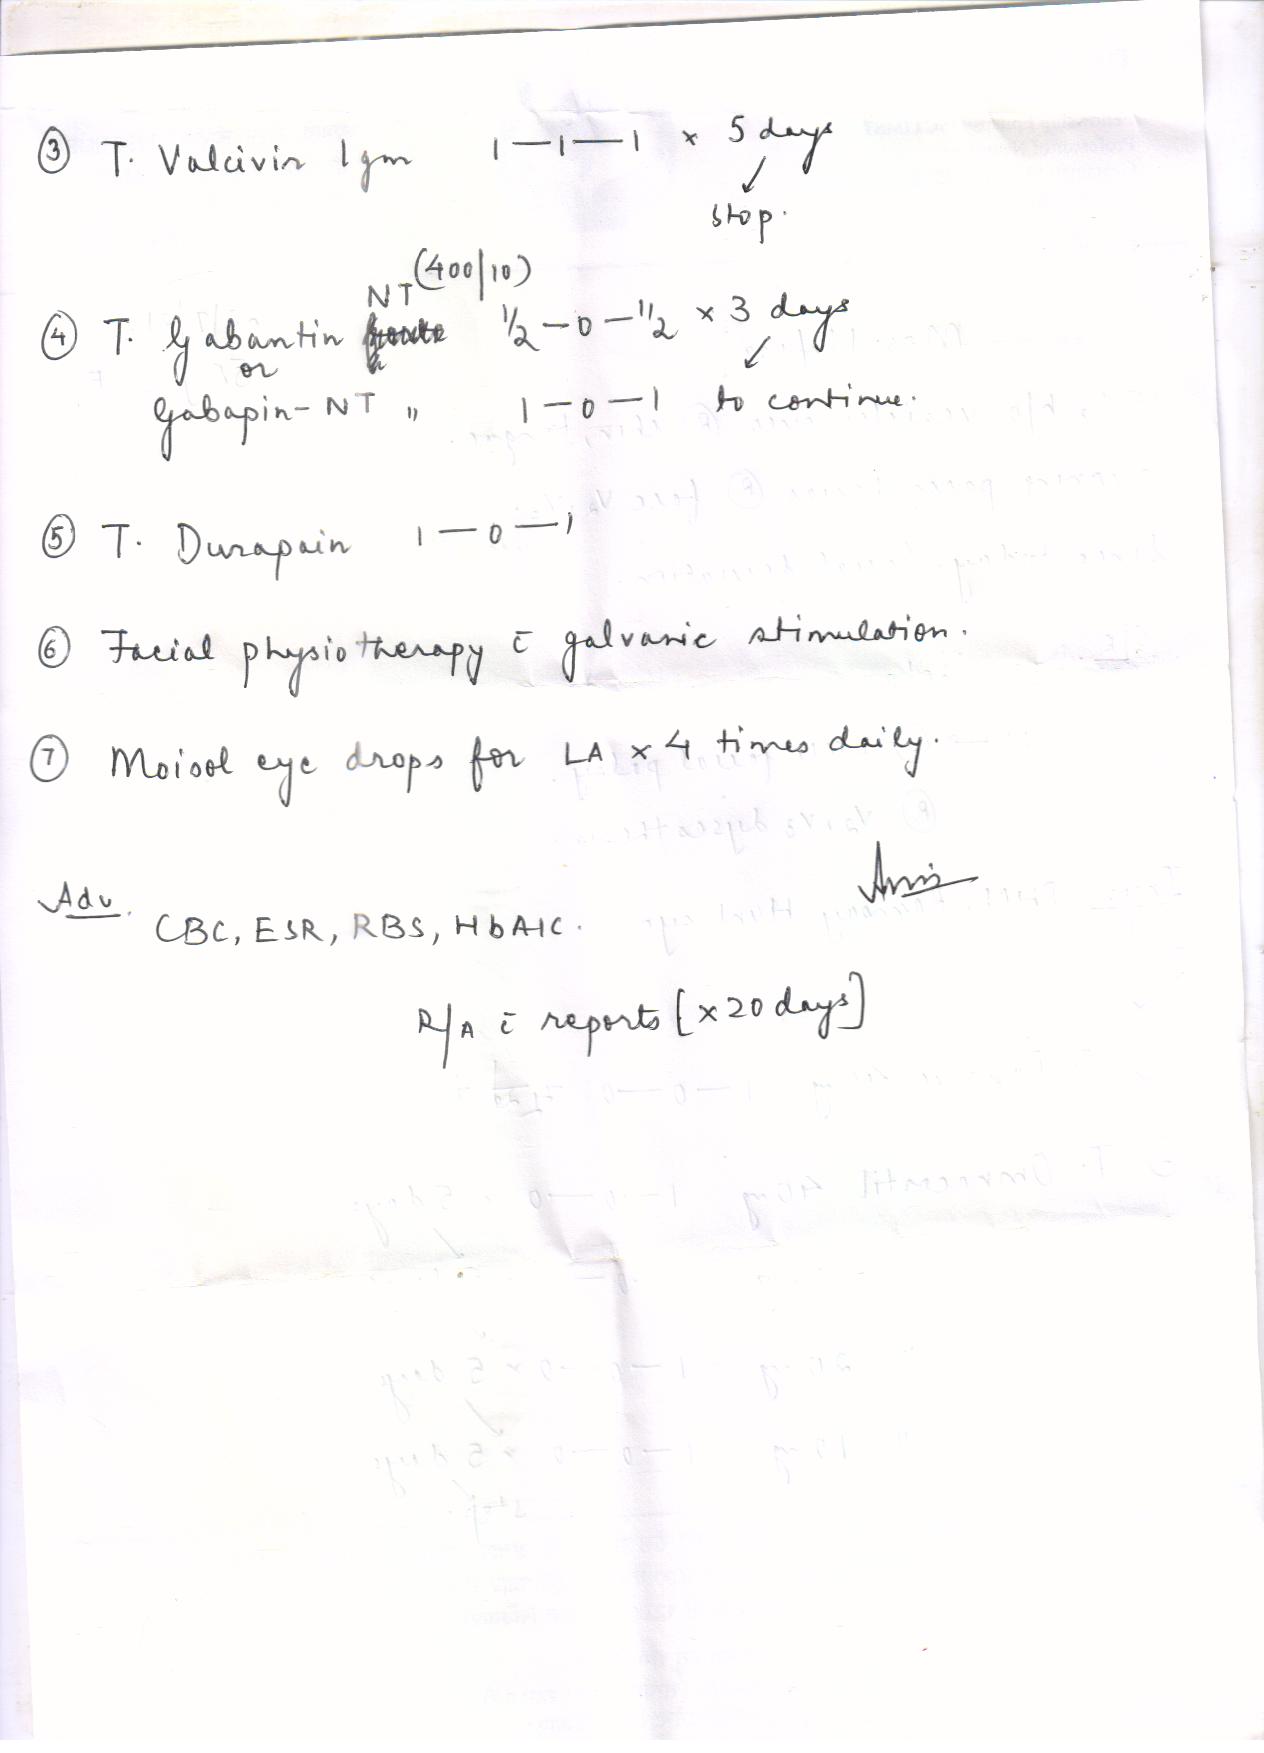 ③ T. Valcivir 1gm 1—1—1 × 5 days
↓
stop.
NT (400/10)
④ T. Gabantin 1/2—0—1/2 × 3 days
or ↓
Gabapin-NT " 1—0—1 to continue.
⑤ T. Durapain 1—0—1
⑥ Facial physiotherapy c̄ galvanic stimulation.
⑦ Moisol eye drops for LA × 4 times daily.
Adv.
CBC, ESR, RBS, HbA1C.
R/A c̄ reports [×20 days]